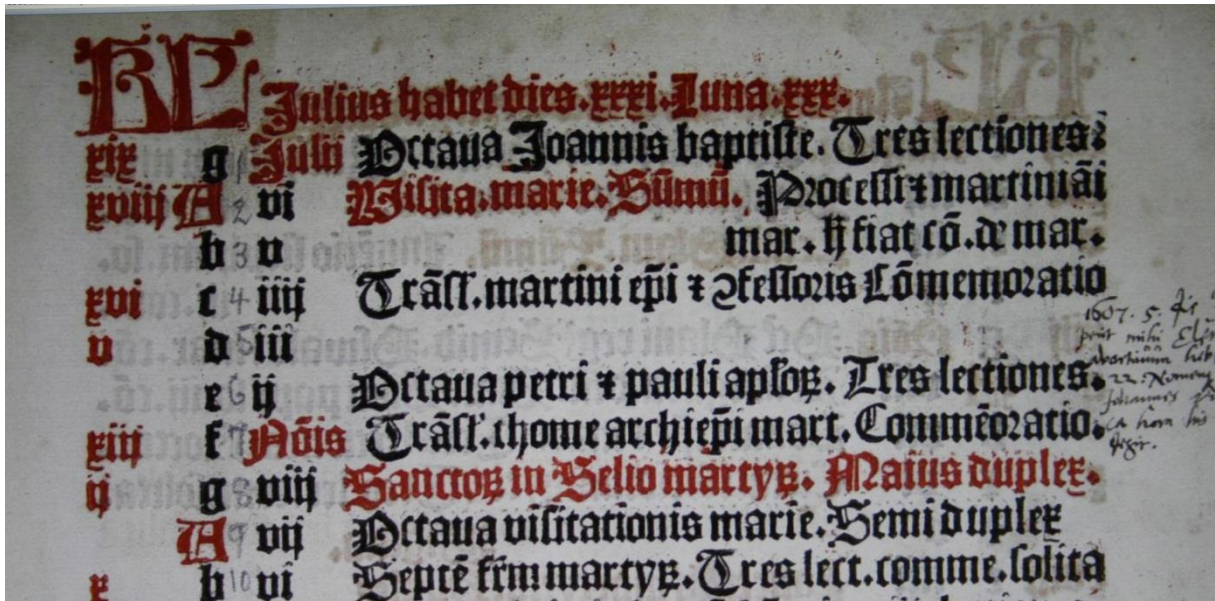 KL Julius habet dies.xxxi.Luna.xxx.
xix g 1 Julii Octaua Joannis baptiste. Tres lectiones.
xviij A 2 vi Visita.marie.Sūmū. Processi ⁊ martiniāi
b 3 v mar. fiat cō. de mar.
xvi c 4 iiij Trāsl.martini ep̄i ⁊ ꝯfessoris Cōmemoratio
v d 5 iii
e 6 ij Octaua petri ⁊ pauli apl'oꝝ. Tres lectiones.
xiij f 7 Nōis Trāsl.thome archiep̄i mart. Commēoratio.
ij g 8 viij Sanctoꝝ in Selio mārtyꝝ. Maius duplex.
A 9 vij Octaua visitationis marie. Semi duplex
x b 10 vi Septē fr̄m martyꝝ. Tres lect.comme.solita
1607. 5.
mihi
22.
Johannes